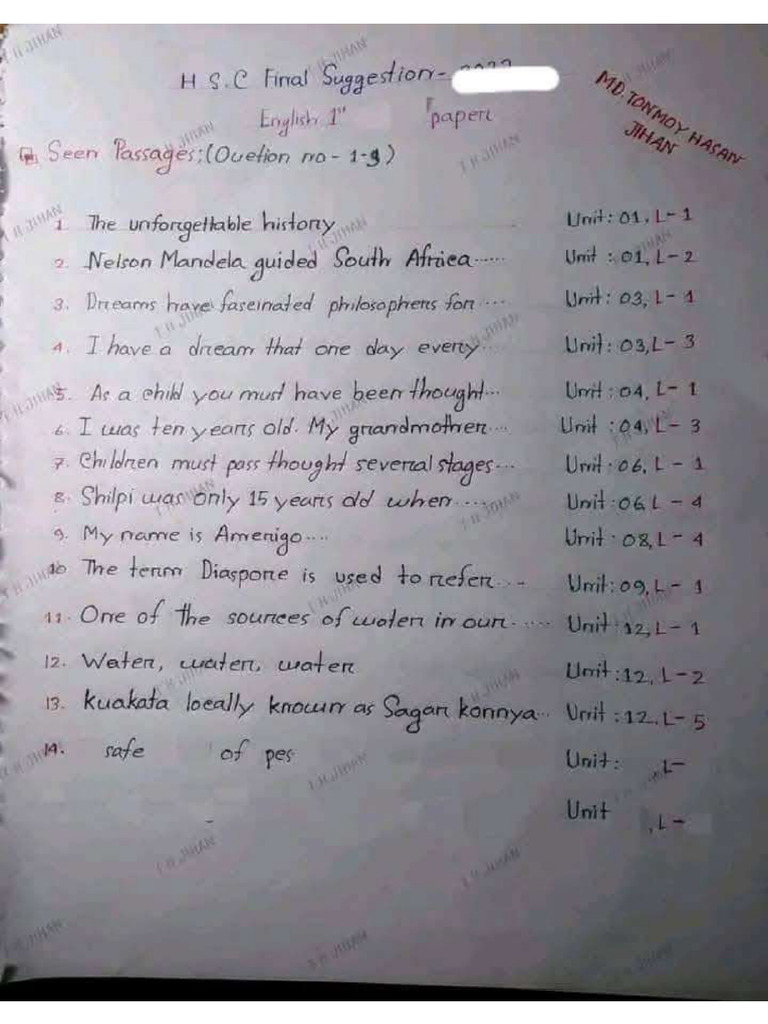 H.S.C Final Suggestion-
MD. TONMOY HASAN
JIHAN
English 1" paperr
Seen Passages: (Ouetion no - 1-3)
1. The unforgettable history Unit: 01, L-1
2. Nelson Mandela guided South Africa..... Unit : 01, L-2
3. Dreams have fascinated philosophers for ... Unit: 03, L-1
4. I have a dream that one day every... Unit: 03, L-3
5. As a child you must have been thought... Unit : 04, L-1
6. I was ten years old. My grandmother... Unit : 04, L-3
7. Children must pass thought several stages... Unit: 06, L-1
8. Shilpi was only 15 years old when..... Unit: 06, L-4
9. My name is Amerigo.... Unit: 08, L-4
10. The term Diaspore is used to refer... Unit: 09, L-1
11. One of the sources of water in our..... Unit: 12, L-1
12. Water, water, water Unit: 12, L-2
13. Kuakata locally known as Sagar konnya... Unit: 12, L-5
14. safe of pes Unit: ,L-
Unit ,L-
T H JIHAN